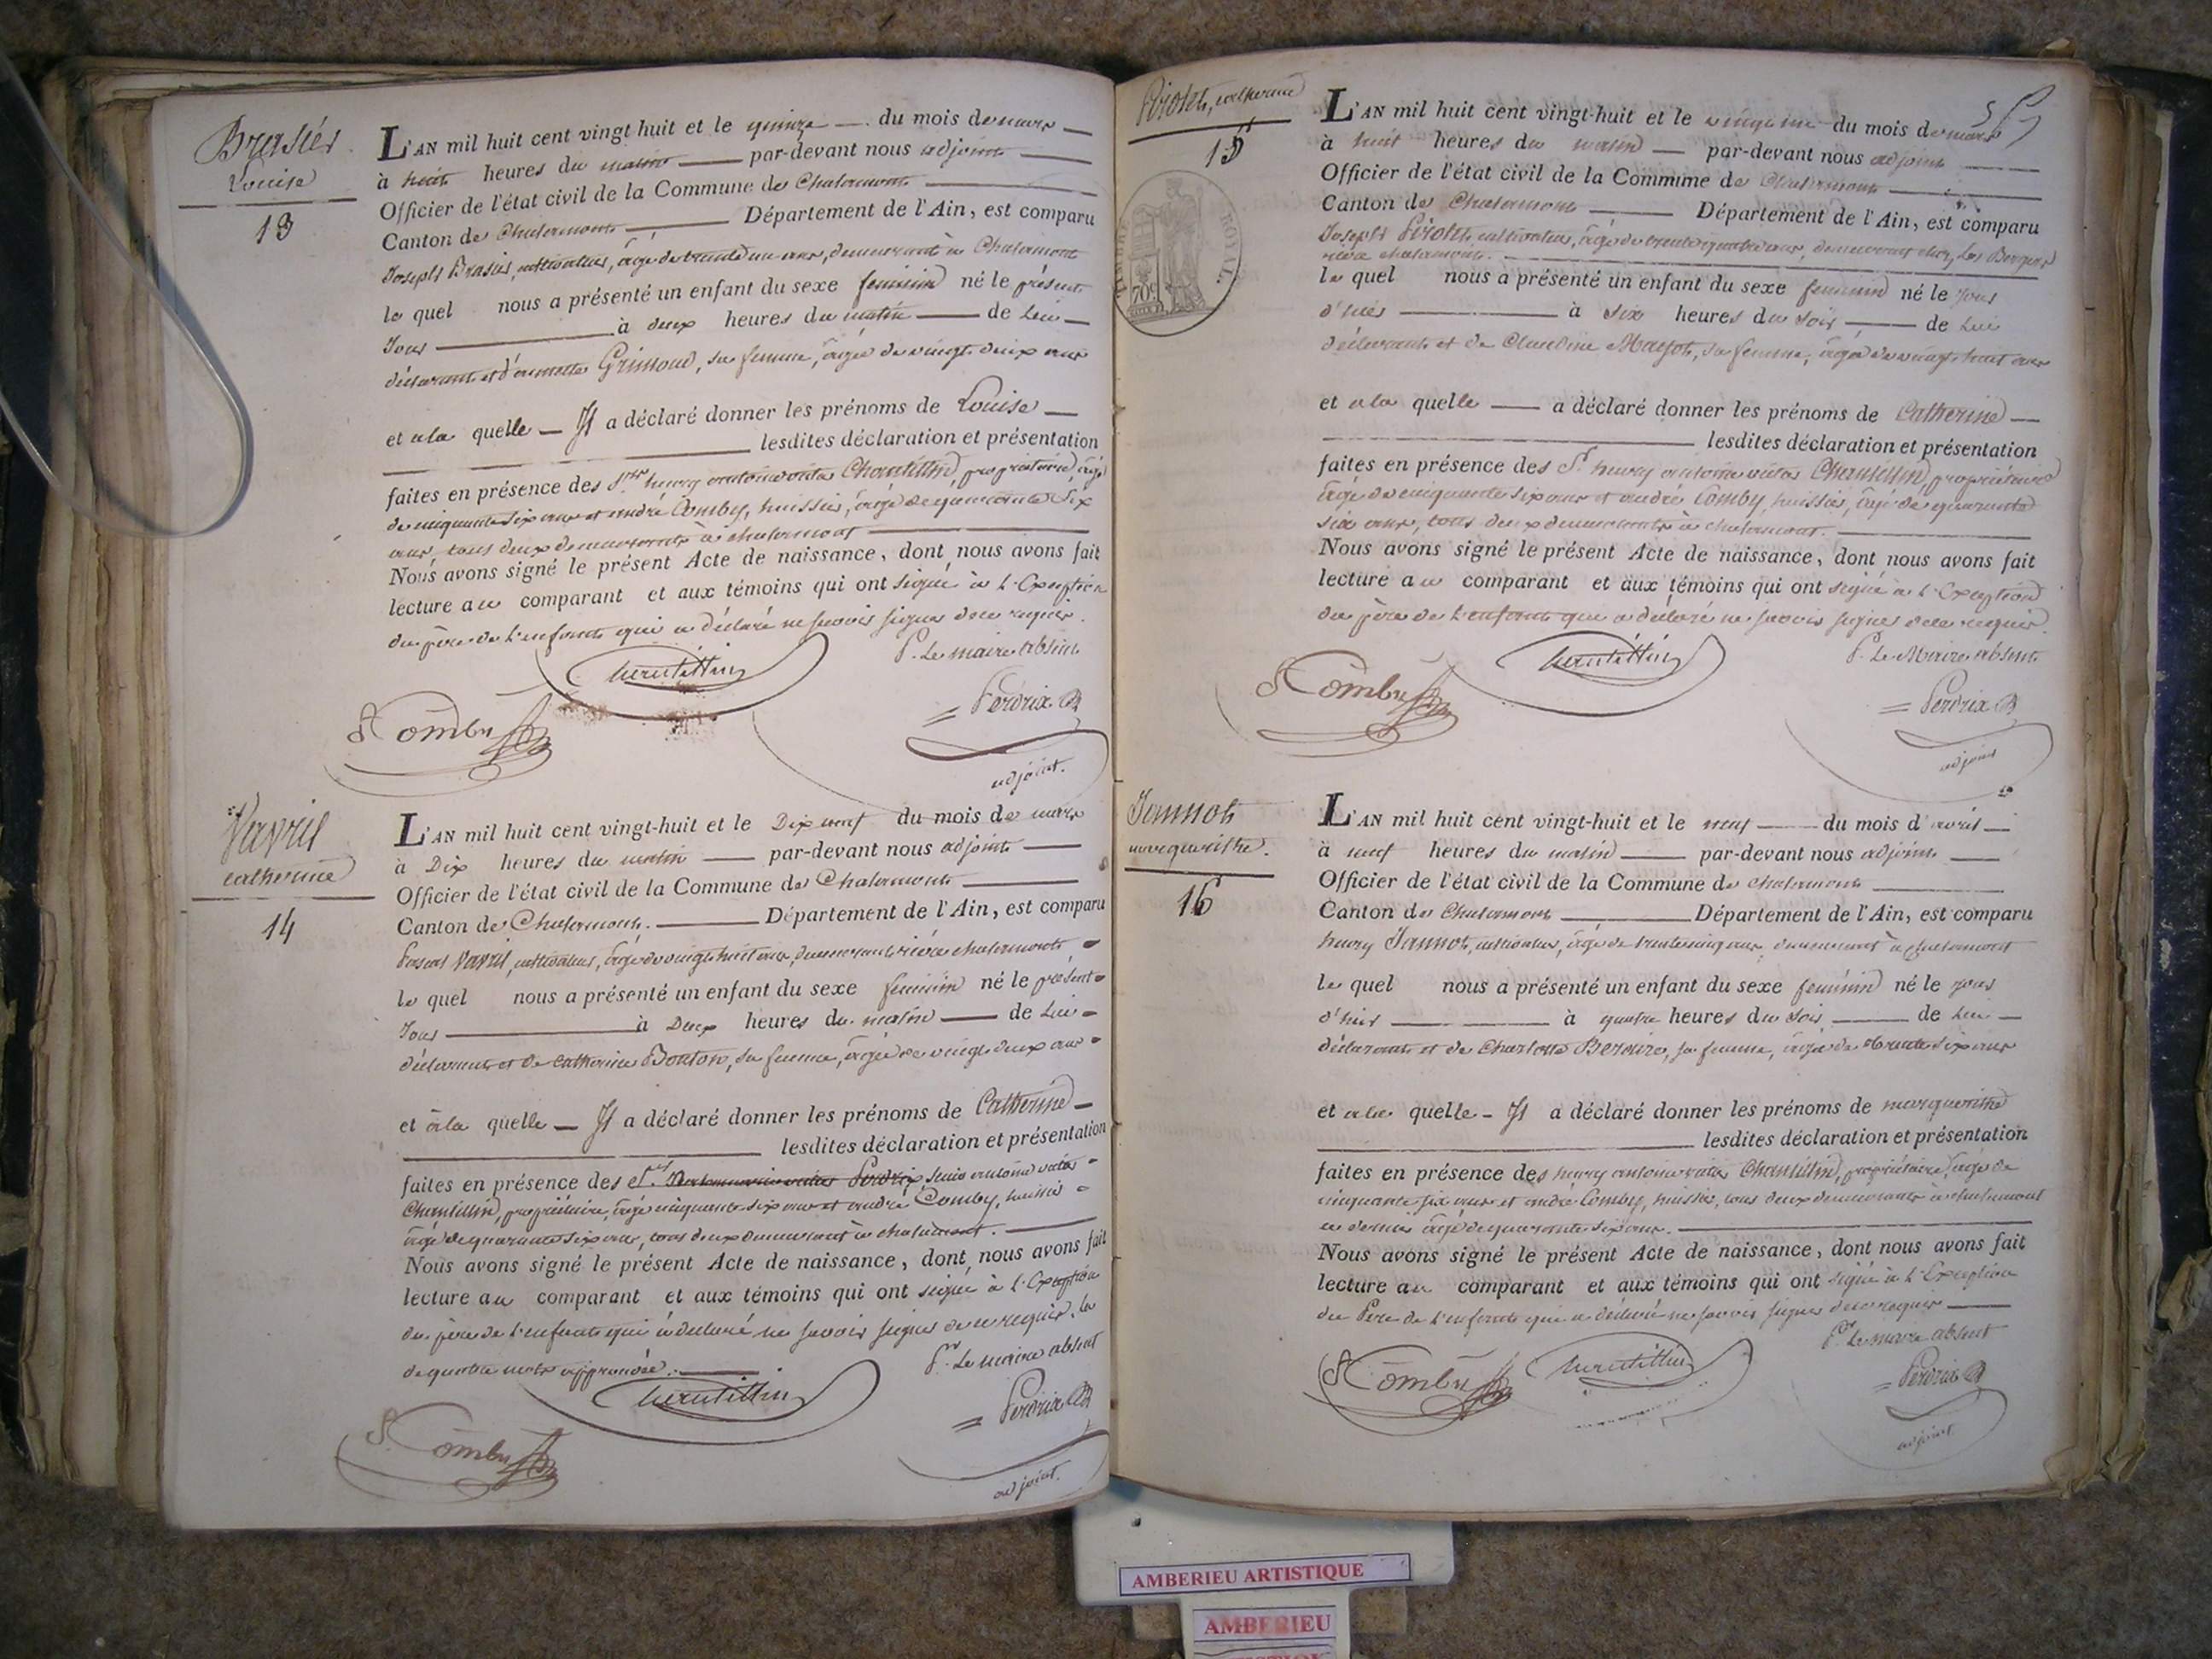 Brasier
Louise
13
L'AN mil huit cent vingt huit et le quinze du mois de mars
à huit heures du matin par-devant nous adjoint
Officier de l'état civil de la Commune de Chalamont
Canton de Chalamont Département de l'Ain, est comparu
Joseph Brasier, cultivateur, âgé de trente un ans, demeurant à Chalamont
le quel nous a présenté un enfant du sexe feminin né le présent
Jour à deux heures du matin de Lui
déclarant et d'annette Grimoud, sa femme, âgée de vingt deux ans
et a la quelle Il a déclaré donner les prénoms de Louise
lesdites déclaration et présentation
faites en présence des Srs henry antoine Chantillin, propriétaire, âgé
de cinquante six ans et andré Comby, huissier, âgé de quarante Six
ans, tous deux demeurants à chalamont
Nous avons signé le présent Acte de naissance, dont nous avons fait
lecture au comparant et aux témoins qui ont signé à l'Exception
du père de l'enfant qui a déclaré ne savoir signer de ce requis.
P. Le maire absent
Chantillin
Perdrix
Comby
adjoint.
Vavril
catherine
14
L'AN mil huit cent vingt-huit et le Dix neuf du mois de mars
à Dix heures du matin par-devant nous adjoint
Officier de l'état civil de la Commune de Chalamont
Canton de Chalamont. Département de l'Ain, est comparu
Vavril, cultivateur, âgé de vingt huit ans, demeurant rière chalamont
le quel nous a présenté un enfant du sexe feminin né le présent
Jour à Deux heures du matin de Lui
déclarant et de catherine Bonton, sa femme, âgée de vingt deux ans
et à la quelle Il a déclaré donner les prénoms de Catherine
lesdites déclaration et présentation
faites en présence des Srs Perdrix henry antoine
Chantillin, propriétaire, âgé cinquante six ans et andré Comby, huissier
âgé de quarante six ans, tous deux demeurant à chalamont.
Nous avons signé le présent Acte de naissance, dont nous avons fait
lecture au comparant et aux témoins qui ont signé à l'Exception
du père de l'enfant qui a déclaré ne savoir signer de ce requis.
de quatre mots approuvée.
Pr. Le maire absent
Chantillin
Perdrix
Comby
adjoint.
Pirolet, catherine
15
TIMBRE ROYAL
70c
L'AN mil huit cent vingt-huit et le du mois de mars
à huit heures du matin par-devant nous adjoint
Officier de l'état civil de la Commune de Chalamont
Canton de Chalamont Département de l'Ain, est comparu
Joseph Pirolet, cultivateur, âgé de trente quatre ans, demeurant
rière chalamont.
le quel nous a présenté un enfant du sexe feminin né le Jour
d'hier à six heures du soir de Lui
déclarant et de Claudine sa femme, âgée de vingt huit ans
et a la quelle a déclaré donner les prénoms de Catherine
lesdites déclaration et présentation
faites en présence des Sr henry antoine Chantillin, propriétaire
âgé de cinquante six ans et andré Comby, huissier, âgé de quarante
six ans, tous deux demeurants à chalamont.
Nous avons signé le présent Acte de naissance, dont nous avons fait
lecture au comparant et aux témoins qui ont signé à l'Exception
du père de l'enfant qui a déclaré ne savoir signer de ce requis.
P. Le Maire absent
Chantillin
Comby
Perdrix
adjoint
Jannot
marguerithe.
16
L'AN mil huit cent vingt-huit et le neuf du mois d'avril
à neuf heures du matin par-devant nous adjoint
Officier de l'état civil de la Commune de chalamont
Canton de Chalamont Département de l'Ain, est comparu
henry Jannot, cultivateur, âgé de trente cinq ans, demeurant à chalamont
le quel nous a présenté un enfant du sexe feminin né le jour
d'hier à quatre heures du soir de Lui
déclarant et de Charlotte sa femme, âgée de trente six ans
et a la quelle Il a déclaré donner les prénoms de marguerithe
lesdites déclaration et présentation
faites en présence des henry antoine Chantillin, propriétaire, âgé de
cinquante six ans et andré Comby, huissier, tous deux demeurants à chalamont
ce dernier âgé de quarante six ans.
Nous avons signé le présent Acte de naissance, dont nous avons fait
lecture au comparant et aux témoins qui ont signé à l'Exception
du Père de l'enfant qui a déclaré ne savoir signer de ce requis
Pr Le maire absent
Comby
Chantillin
Perdrix
adjoint
AMBERIEU ARTISTIQUE
AMBERIEU